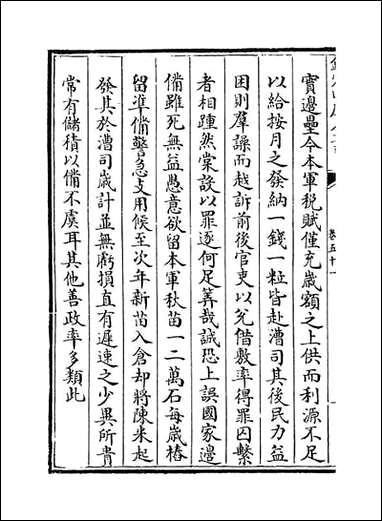 卷五十一
實邊壘今本軍税賦僅充歲額之上供而利源不足
以給按月之發納一錢一粒皆赴漕司其後民力益
困則羣譟而越訴前後官吏以兑借敷率得罪囚繫
者相踵然棠設以罪逐何足筭哉誠恐上誤國家邊
備雖死無益愚意欲留本軍秋苗一二萬石每歲樁
留凖備警急支用候至次年新苗入倉却將陳米起
發其於漕司歲計並無虧損直有遲速之少異所貴
常有儲積以備不虞耳其他善政率多類此